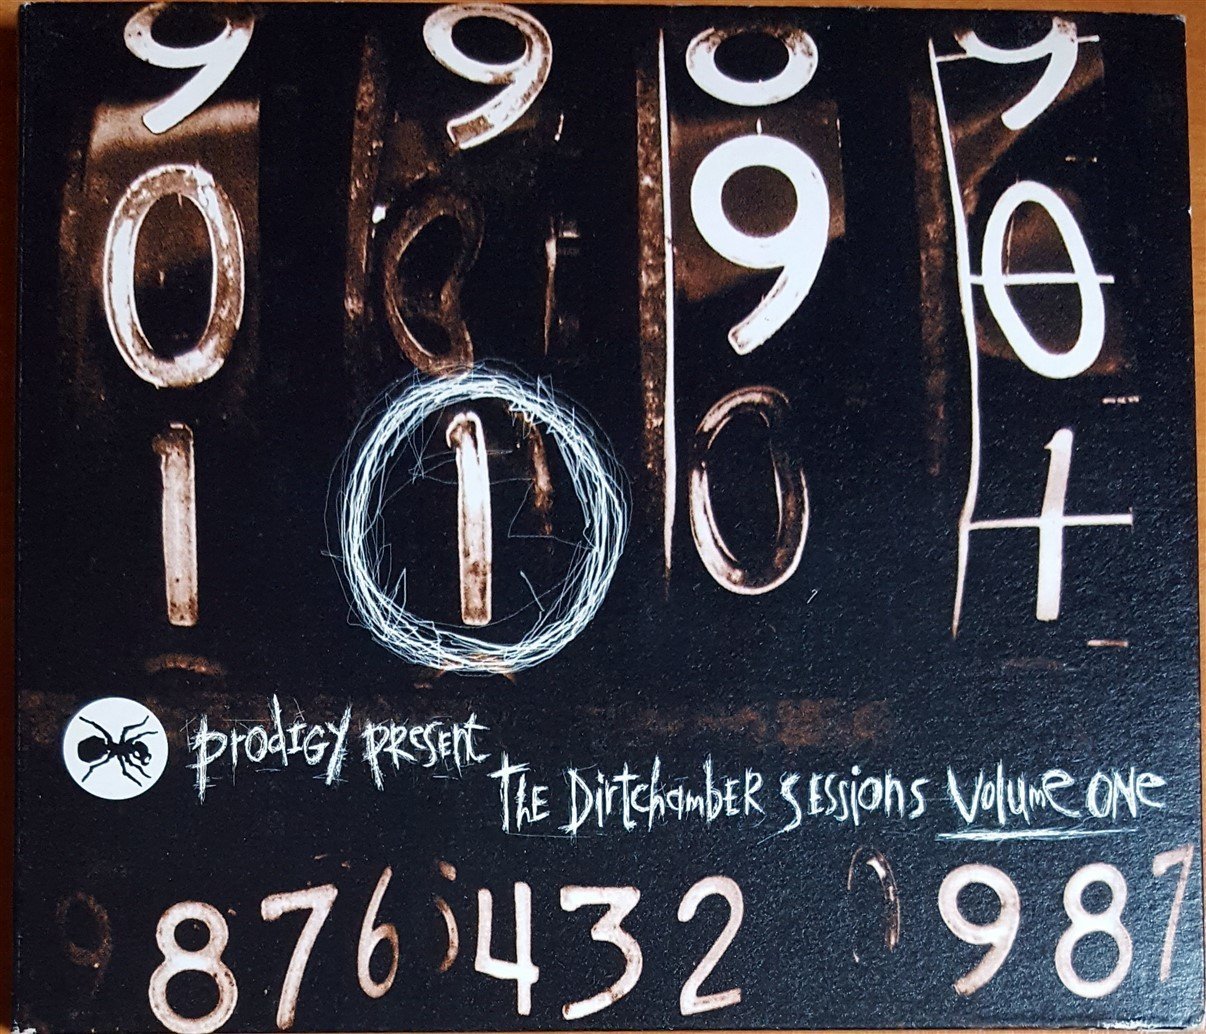 9 9 0 9
0 0 9 0
1 1 0 1
prodigy present
The Dirtchamber Sessions Volume One
9 8 7 6 5 4 3 2 0 9 8 7